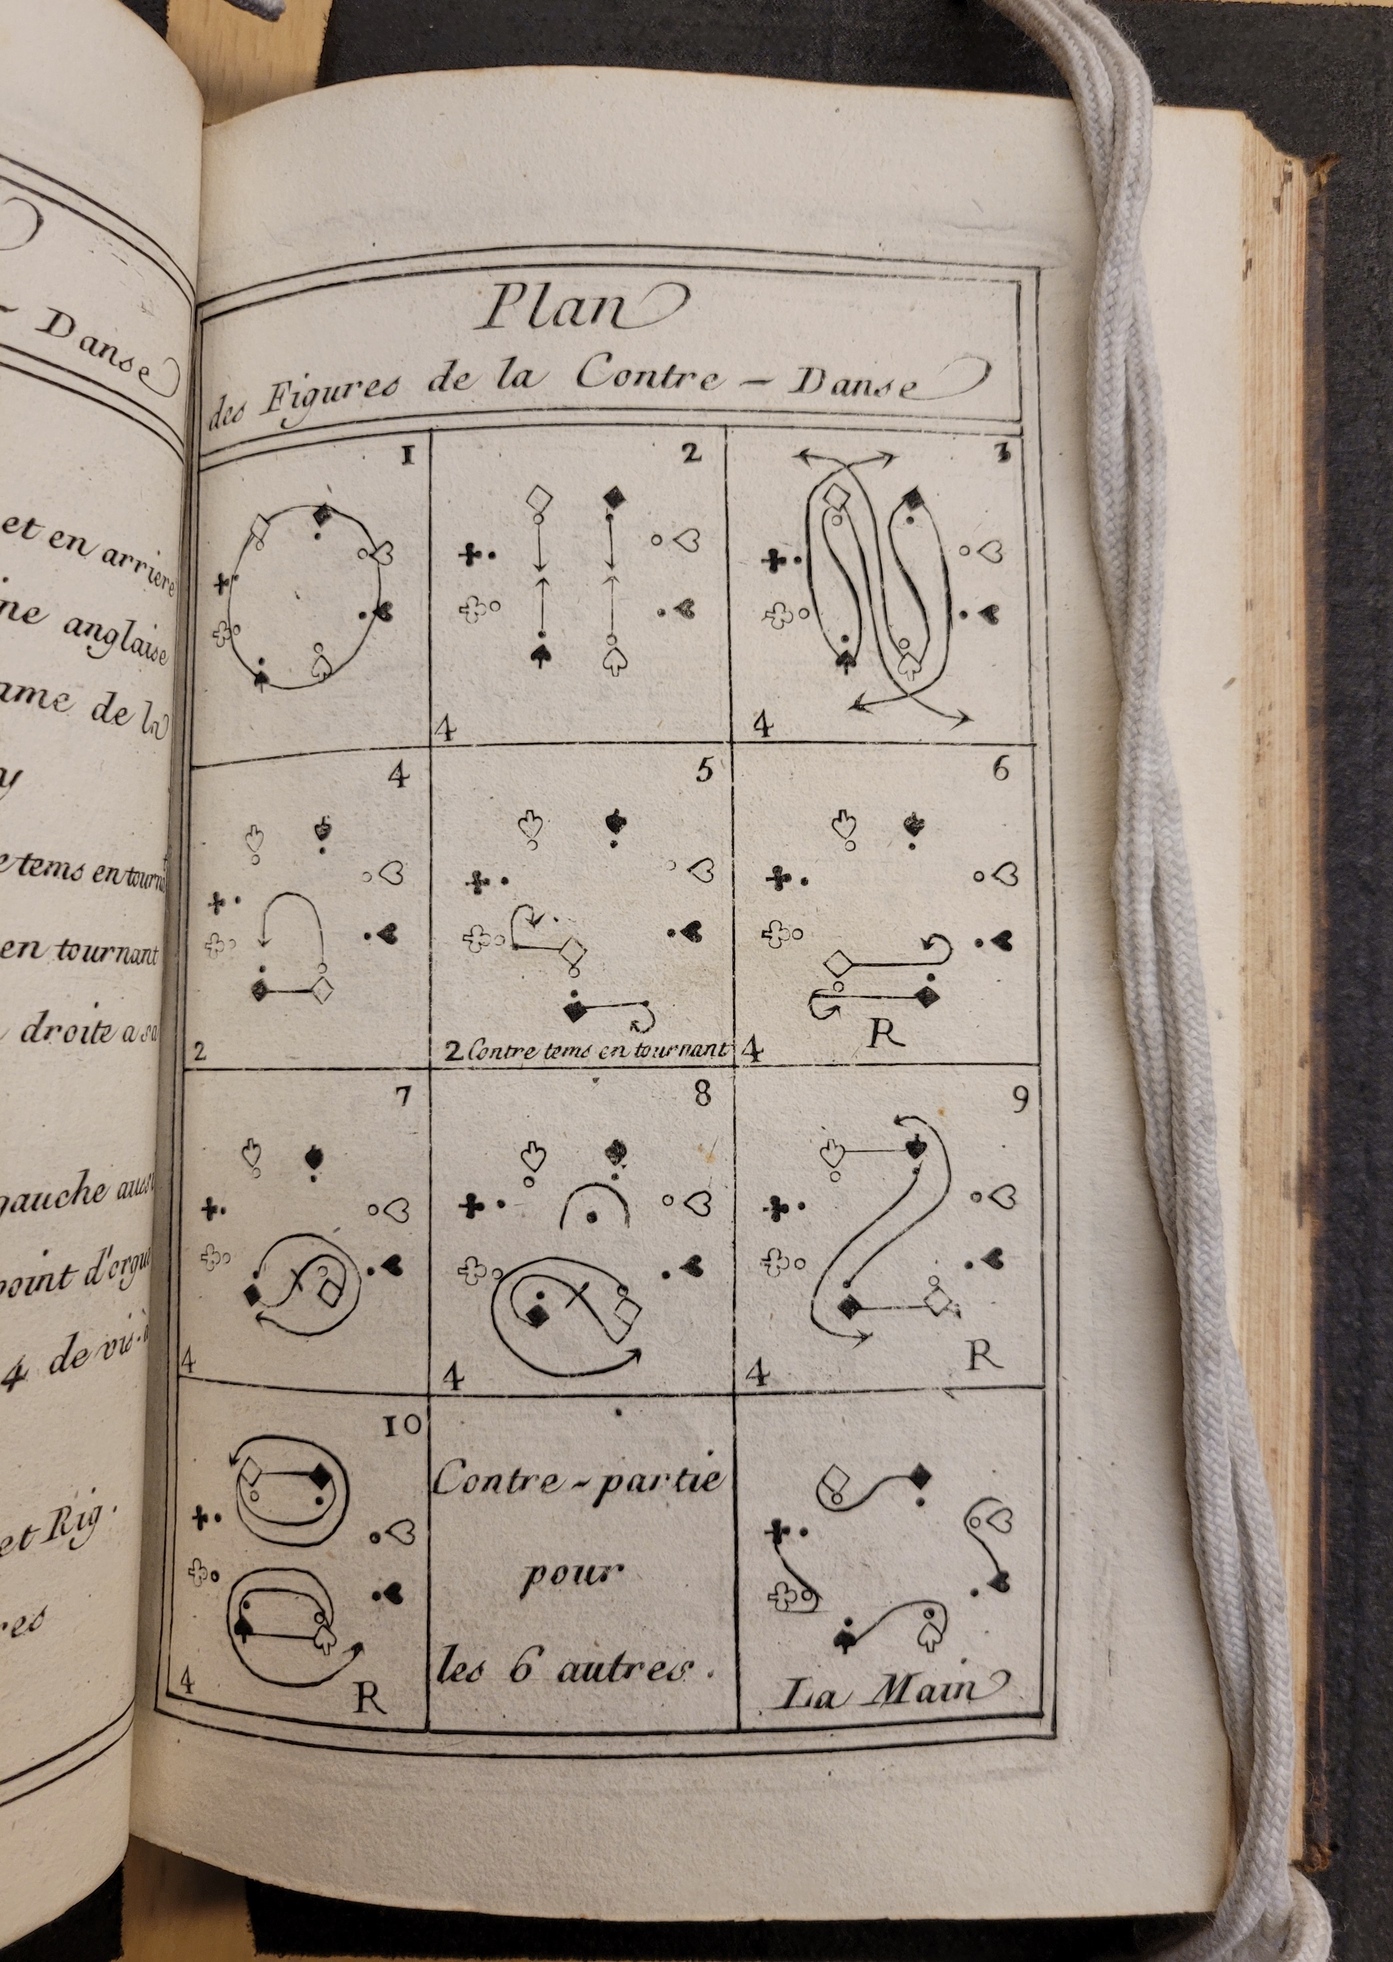 Danse
et en arriere
ne anglaise
ame de la
y
e tems en tourn
en tournant
droite a sa
gauche aussi
point d'orgue
4 de vis-à
et Rig.
res
Plan
des Figures de la Contre - Danse
1
2
4
3
4
4
2
5
2 Contre tems en tournant
6
4
R
7
4
8
4
9
4
R
10
4
R
Contre-partie
pour
les 6 autres.
La Main